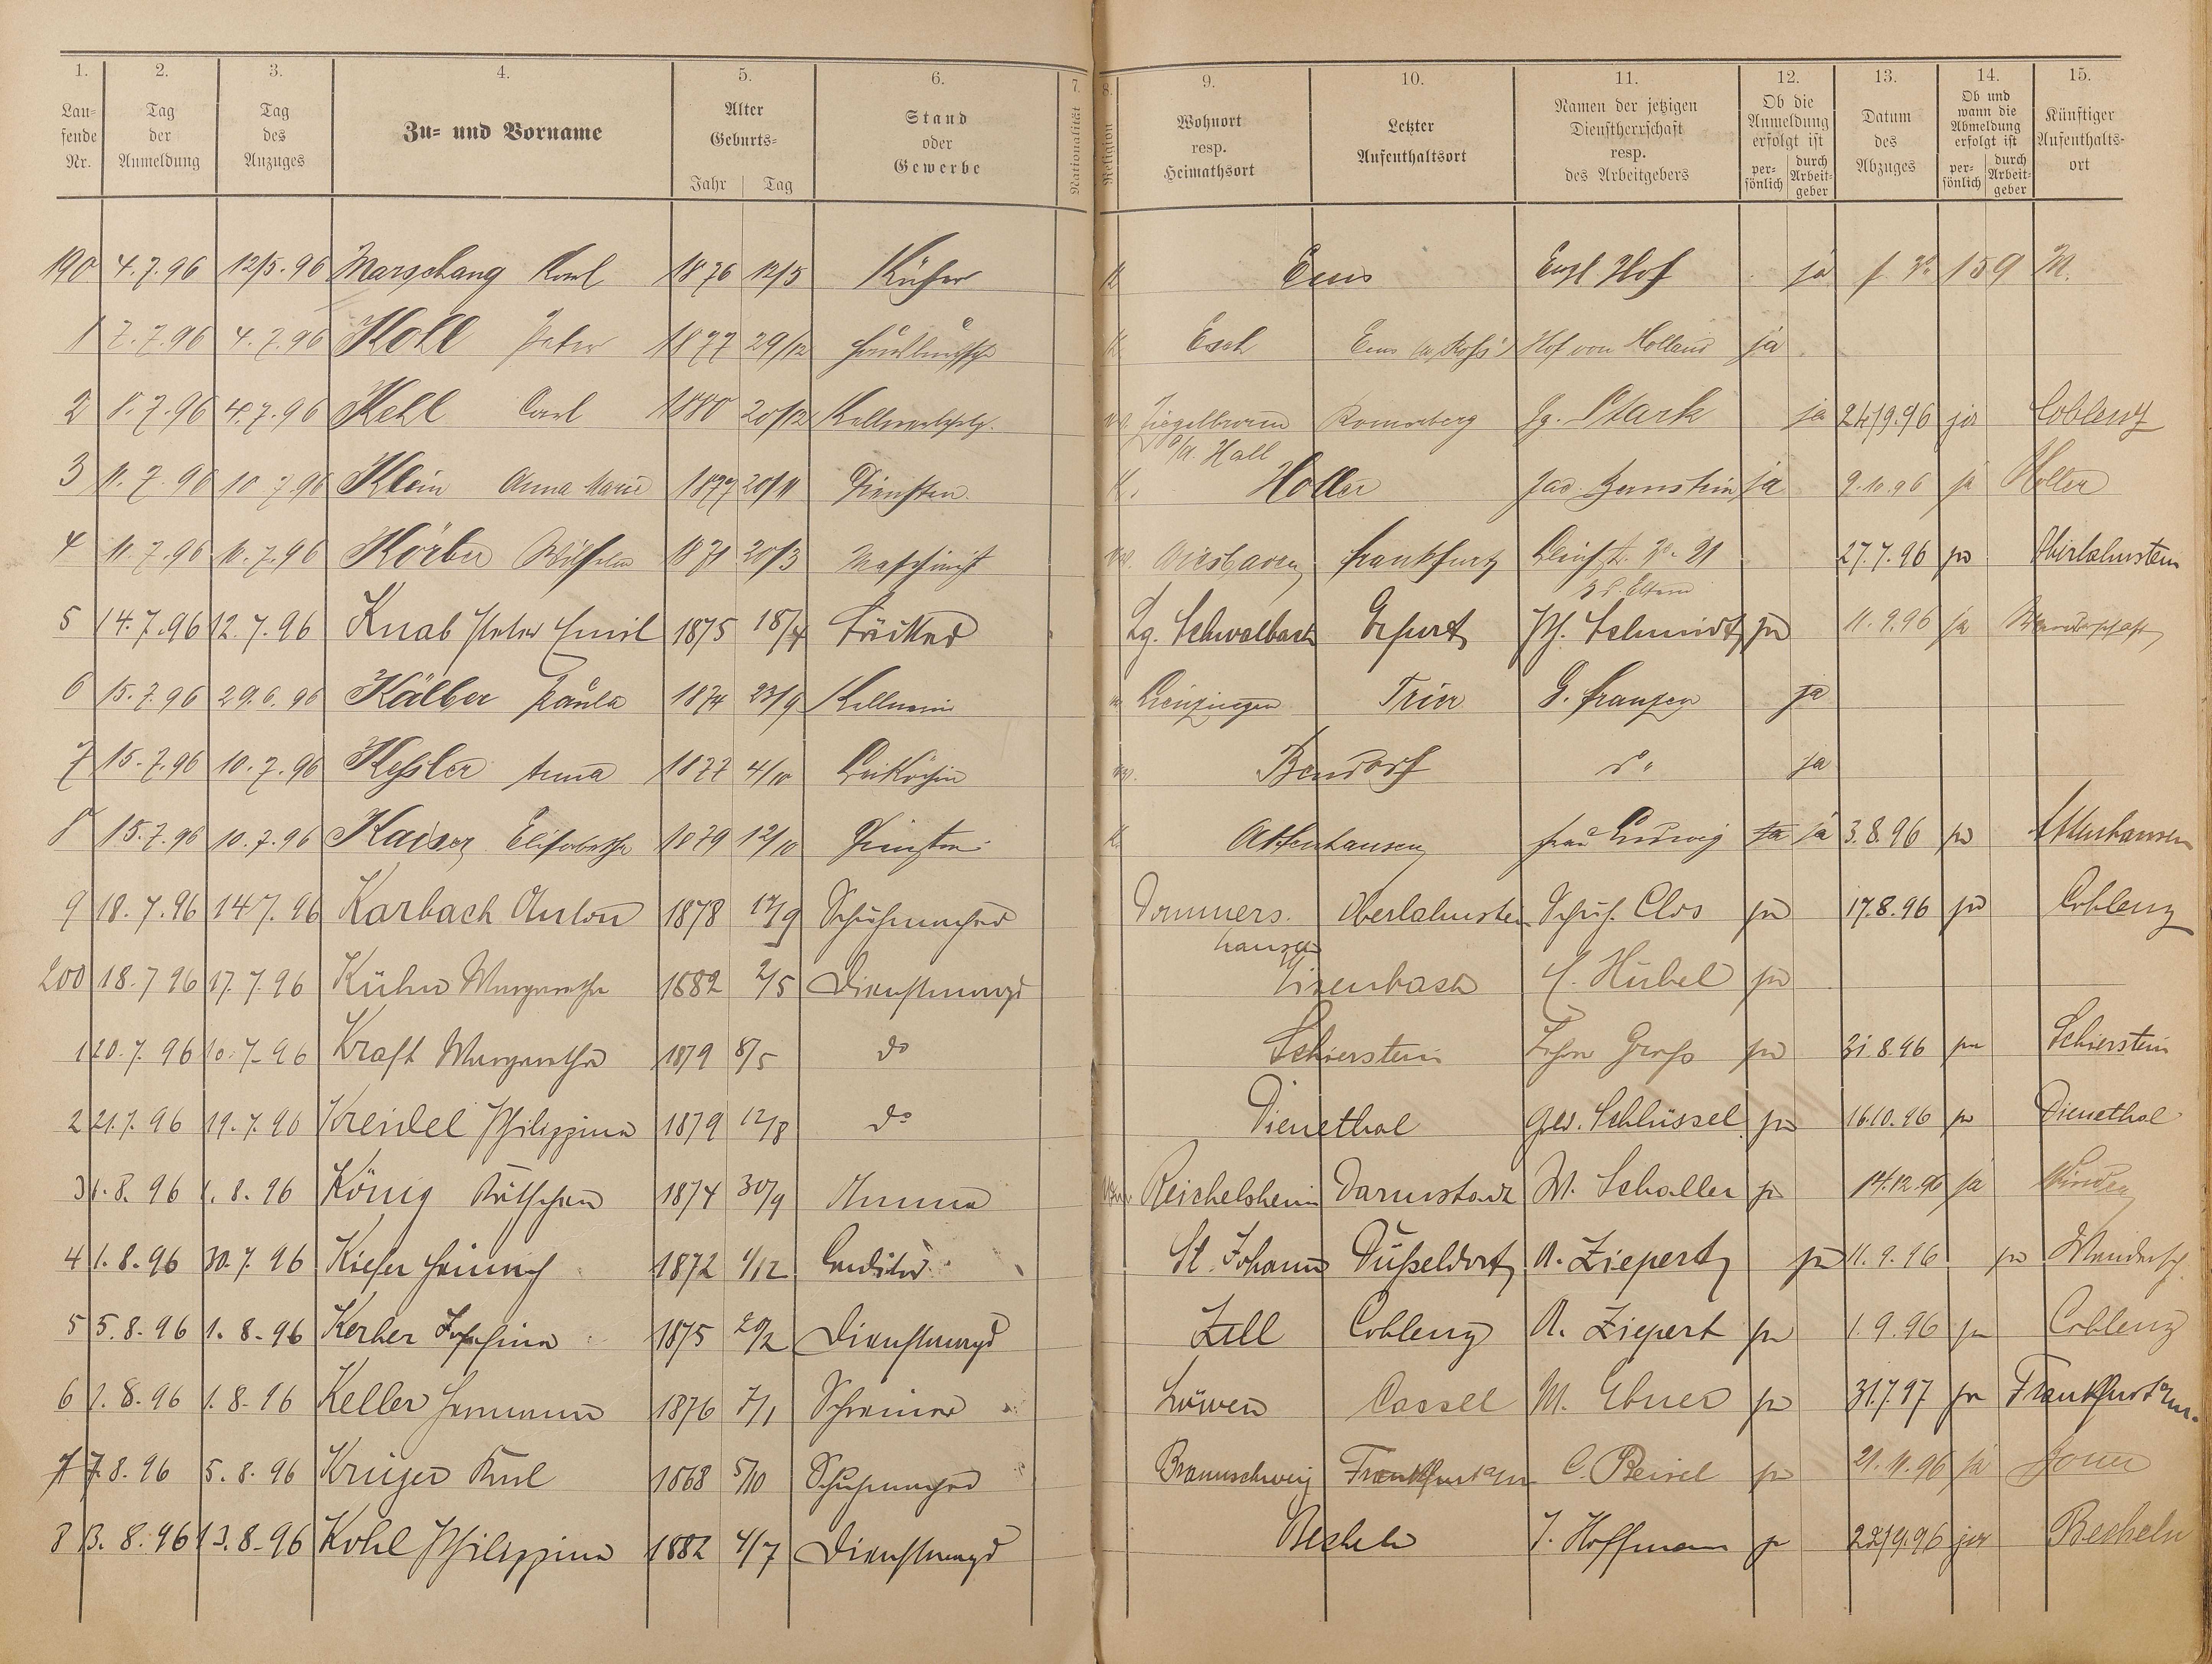 1. 2. 3. 4. 5. 6. 7. 8. 9. 10. 11. 12. 13. 14. 15.
Lau-
fende
Nr.
Tag
der
Anmeldung
Tag
des
Anzuges
Zu- und Vorname
Alter
Geburts-
Jahr Tag
Stand
oder
Gewerbe
Nationalität
Religion
Wohnort
resp.
Heimathsort
Letzter
Aufenthaltsort
Namen der jetzigen
Dienstherrschaft
resp.
des Arbeitgebers
Ob die
Anmeldung
erfolgt ist
per-
sönlich
durch
Arbeit-
geber
Datum
des
Abzuges
Ob und
wann die
Abmeldung
erfolgt ist
per-
sönlich
durch
Arbeit-
geber
Künftiger
Aufenthalts-
ort
190 4.7.96 12/5.96 Marschang Karl 1876 12/5 Küfer K Ems Engl Hof ja 159 M.
1 7.7.96 4.7.96 Koll Peter 1877 29/12 K. Esch Ems Hof von Holland ja
2 8.7.96 4.7.96 Kehl Carl 1880 20/12 Ziegelbronn Jg. Stark ja 24/9.96 ja Coblenz
a/ Hall
3 11.7.96 10.7.96 Klein Anna Marie 1877 20/11 K. Holler Jac. Bernstein ja 9.10.96 ja Holler
4 11.7.96 11.7.96 Körber Wilhelm 1871 20/3 Maschinist Wiesbaden Frankfurt 27.7.96 ja Oberlahnstein
z. d. Eltern
5 14.7.96 12.7.96 Knab Peter Emil 1875 18/4 Bäcker Lg. Schwalbach Erfurt Ph. Schmidt ja 11.9.96 ja Wanderschaft
6 15.7.96 29.6.96 Kälber Paula 1874 23/9 Kellnerin Lienzingen Trier G. Franzen ja
7 15.7.96 10.7.96 Keßler Anna 1877 4/10 Beiköchin Bendorf do ja
8 15.7.96 10.7.96 Kaiser Elisabetha 1879 12/10 K. Attenhausen Frau Ludwig ja ja 3.8.96 ja Attenhausen
9 18.7.96 14 7.96 Karbach Anton 1878 17/9 Schuhmacher Dommers- Oberlahnstein Schuh. Clos ja 17.8.96 ja Coblenz
hausen
200 18.7 96 17.7.96 Kühn Margaretha 1882 2/5 Dienstmagd Eisenbach C. Hübel ja
1 20.7.96 10.7.96 Kraft Margaretha 1879 8/5 do Schierstein ja 31.8.96 ja Schierstein
2 21.7.96 19.7.96 Kreidel Philippina 1879 12/8 do Dienethal Gew. Schlüssel ja 16.10.96 ja Dienethal
3 1.8.96 1.8.96 König Käthchen 1874 30/9 Amme Reichelsheim Darmstadt W. Schaller ja 14.12.96 ja
4 1.8.96 30.7.96 Kiefer Heinrich 1872 1/12 Conditor St. Johann Düßeldorf A. Ziepert ja 11.9.96 ja Wandersch.
5 5.8.96 1.8.96 Kerber Josefina 1875 20/2 Dienstmagd Zell Coblenz A. Ziepert ja 1.9.96 ja Coblenz
6 1.8.96 1.8.96 Keller Hermann 1876 7/1 Schreiner Löwen Cassel M. Ebner ja 31.7.97 ja Frankfurt a/m.
7 7.8.96 5.8.96 Krüger Karl 1868 5/10 Schuhmacher Braunschweig Frankfurt a/m C. Beisel ja 21.11.96 ja
8 13.8.96 13.8.96 Kohl Philippina 1882 4/7 Dienstmagd Becheln J. Hoffmann ja 22/9.96 ja Becheln